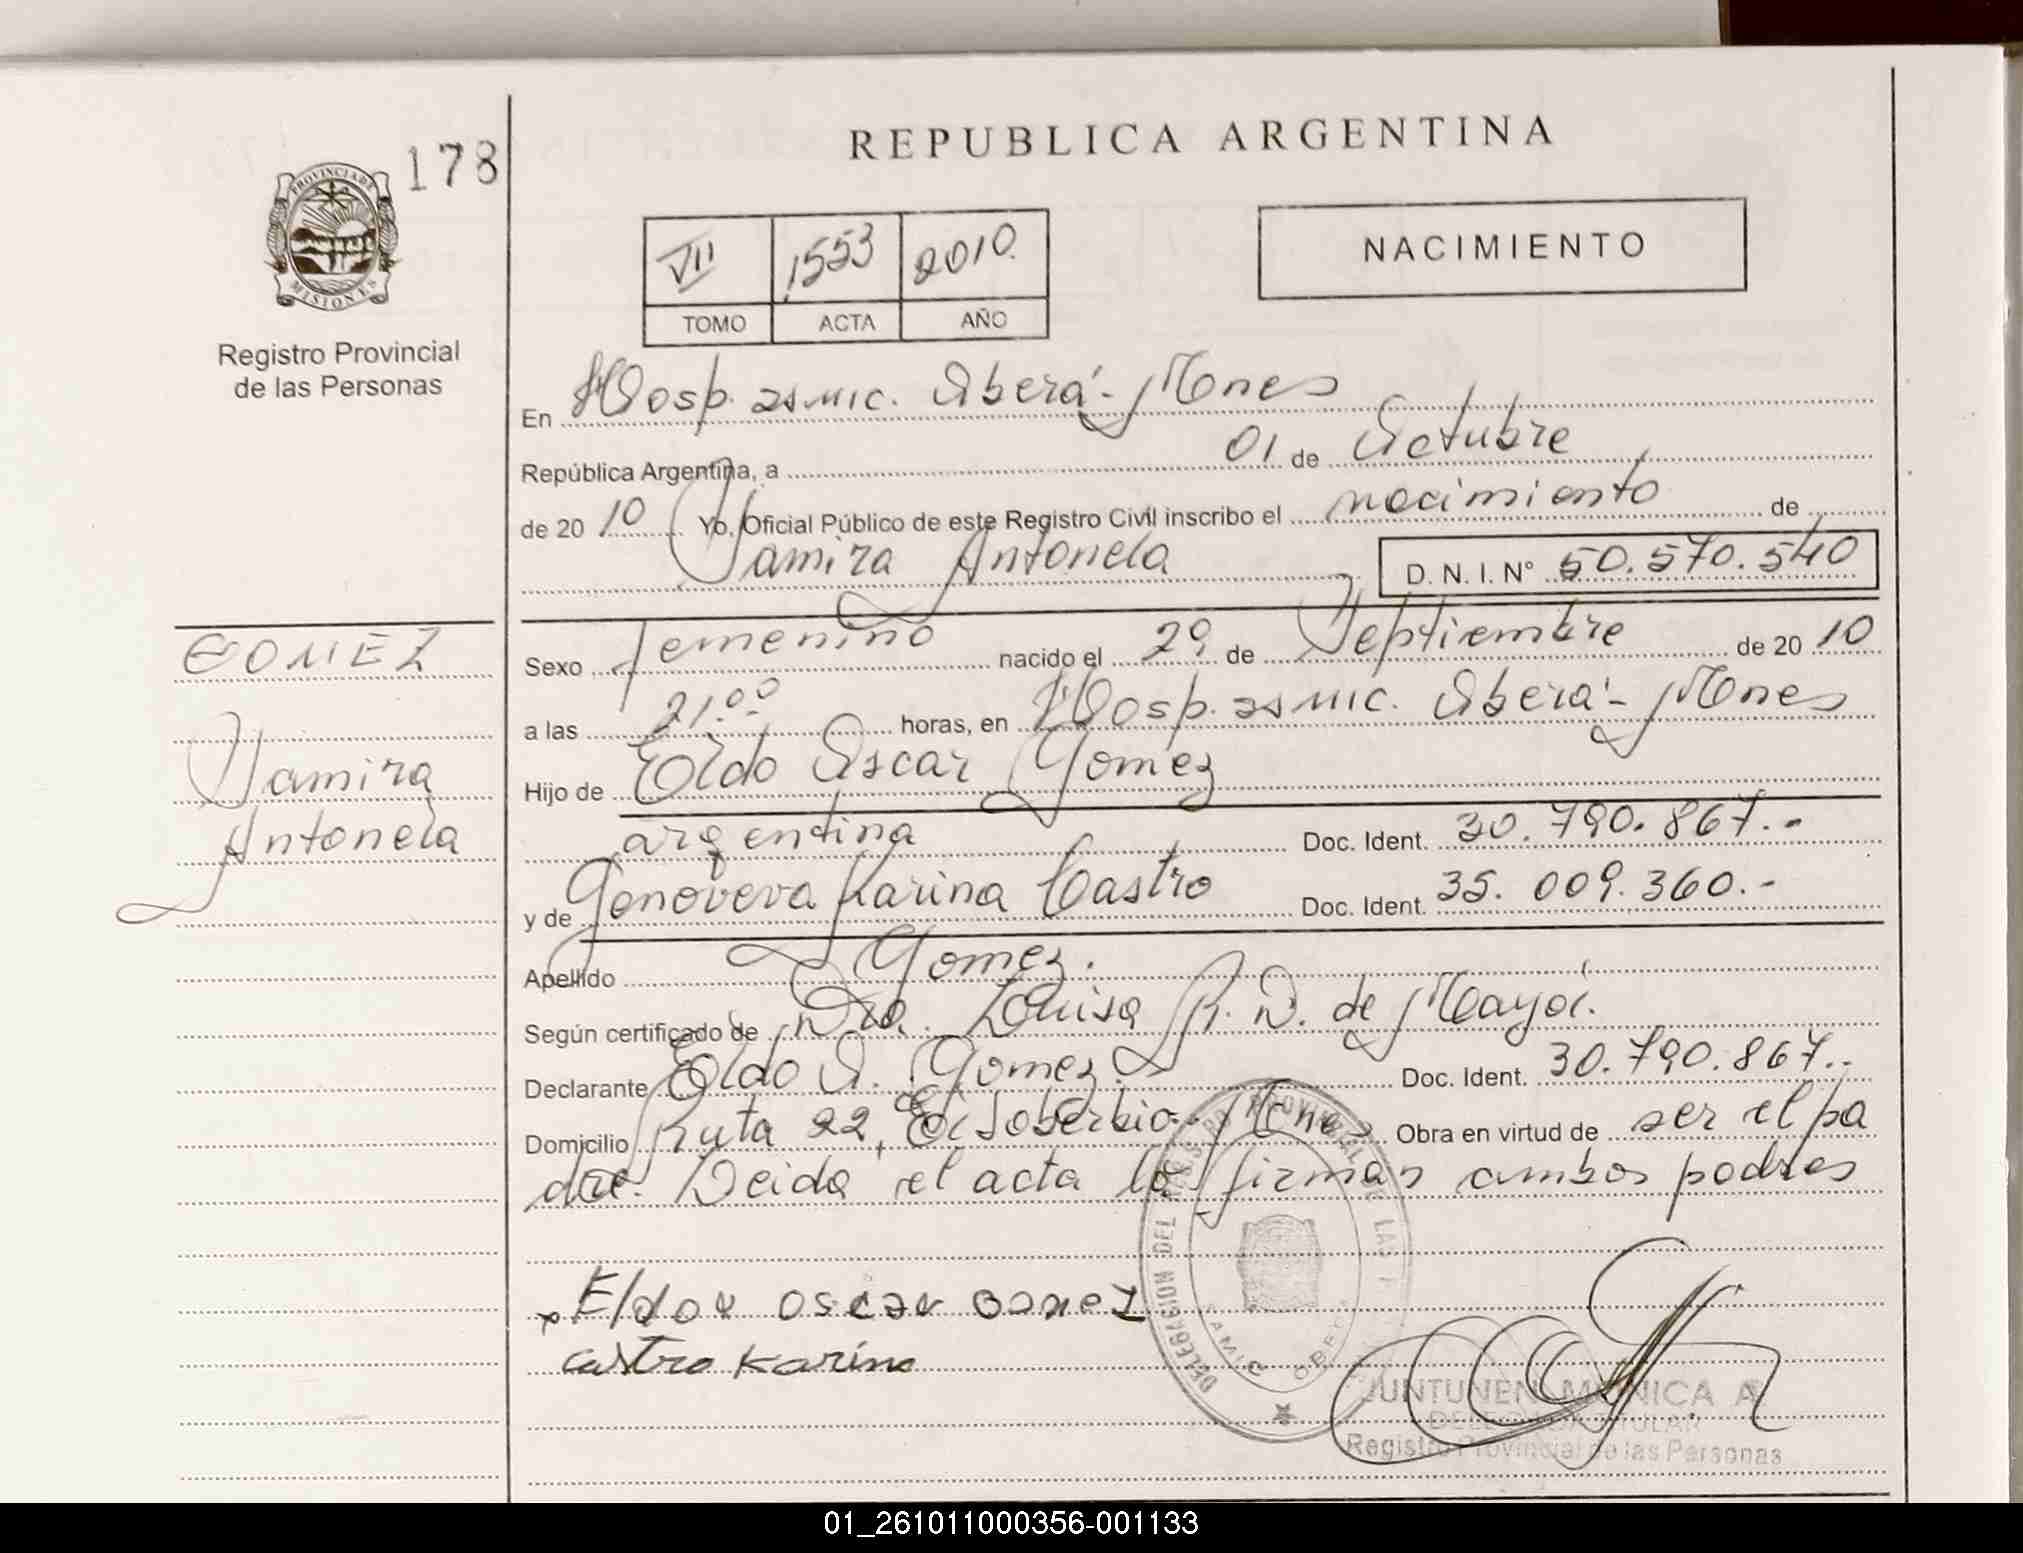 178
PROVINCIA DE
MISIONES
Registro Provincial
de las Personas
GOMEZ
Yamira
Antonela
REPUBLICA ARGENTINA
VII 1553 2010.
TOMO ACTA AÑO
NACIMIENTO
En Hosp. Oberá - Mnes
República Argentina, a 01 de Octubre
de 20 10 Yo, Oficial Público de este Registro Civil inscribo el nacimiento de
Yamira Antonela D. N. I. N° 50.570.540
Sexo femenino nacido el 29 de Septiembre de 20 10
a las 21.00 horas, en Hosp. Oberá - Mnes
Hijo de Eldo Oscar Gomez
argentina Doc. Ident. 30.790.867.-
y de Genoveva Karina Castro Doc. Ident. 35.009.360.-
Apellido Gomez.
Según certificado de Dra. Luisa R. D. de
Declarante Eldo O. Gomez. Doc. Ident. 30.790.867.-
Domicilio Ruta 22, El Soberbio - Mnes Obra en virtud de ser el pa
dre. Leida el acta la firman ambos padres
x Eldo oscar Gomez
castro Karina
DELEGACION DEL PROVINCIAL DE LAS
SAMIC OBERA
JUNTUNEN MONICA A
DELEGADA TITULAR
Registro Provincial de las Personas
01_261011000356-001133